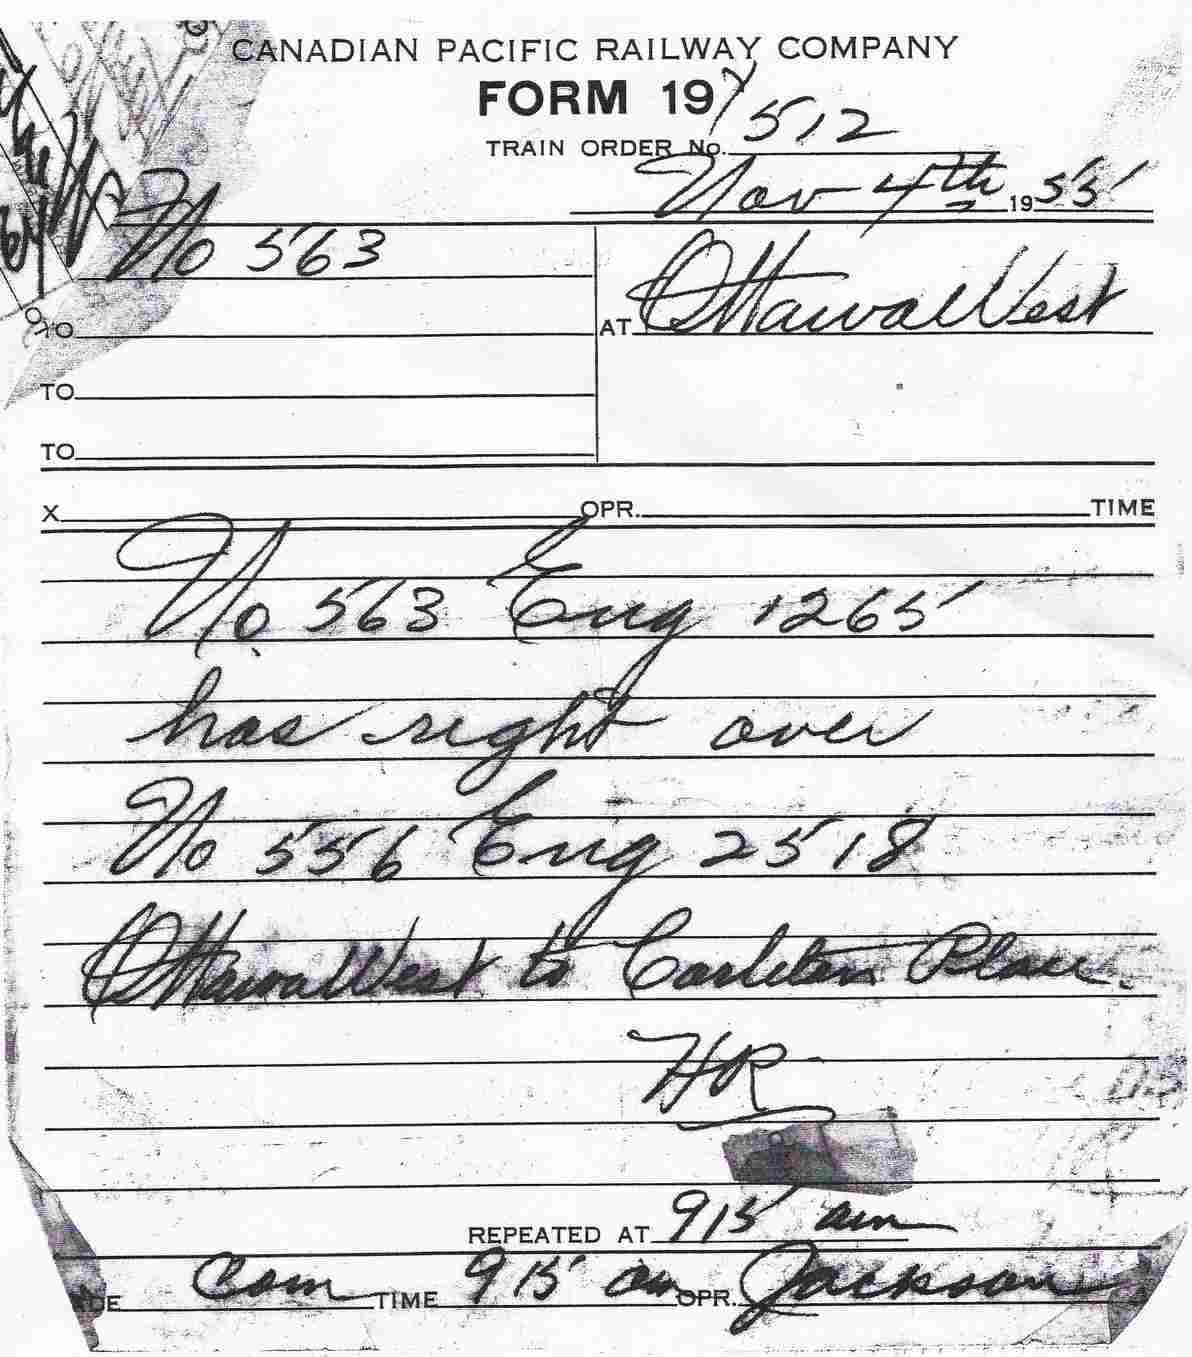 CANADIAN PACIFIC RAILWAY COMPANY
FORM 19Y
TRAIN ORDER No. 512
Nov 4th 1955
No 563
TO
AT Ottawa West
TO
TO
X OPR. TIME
No 563 Eng 1265
has right over
No 556 Eng 2518
Ottawa West to Carleton Place.
HR
REPEATED AT 915 am
Com TIME 915 am OPR. Jackson